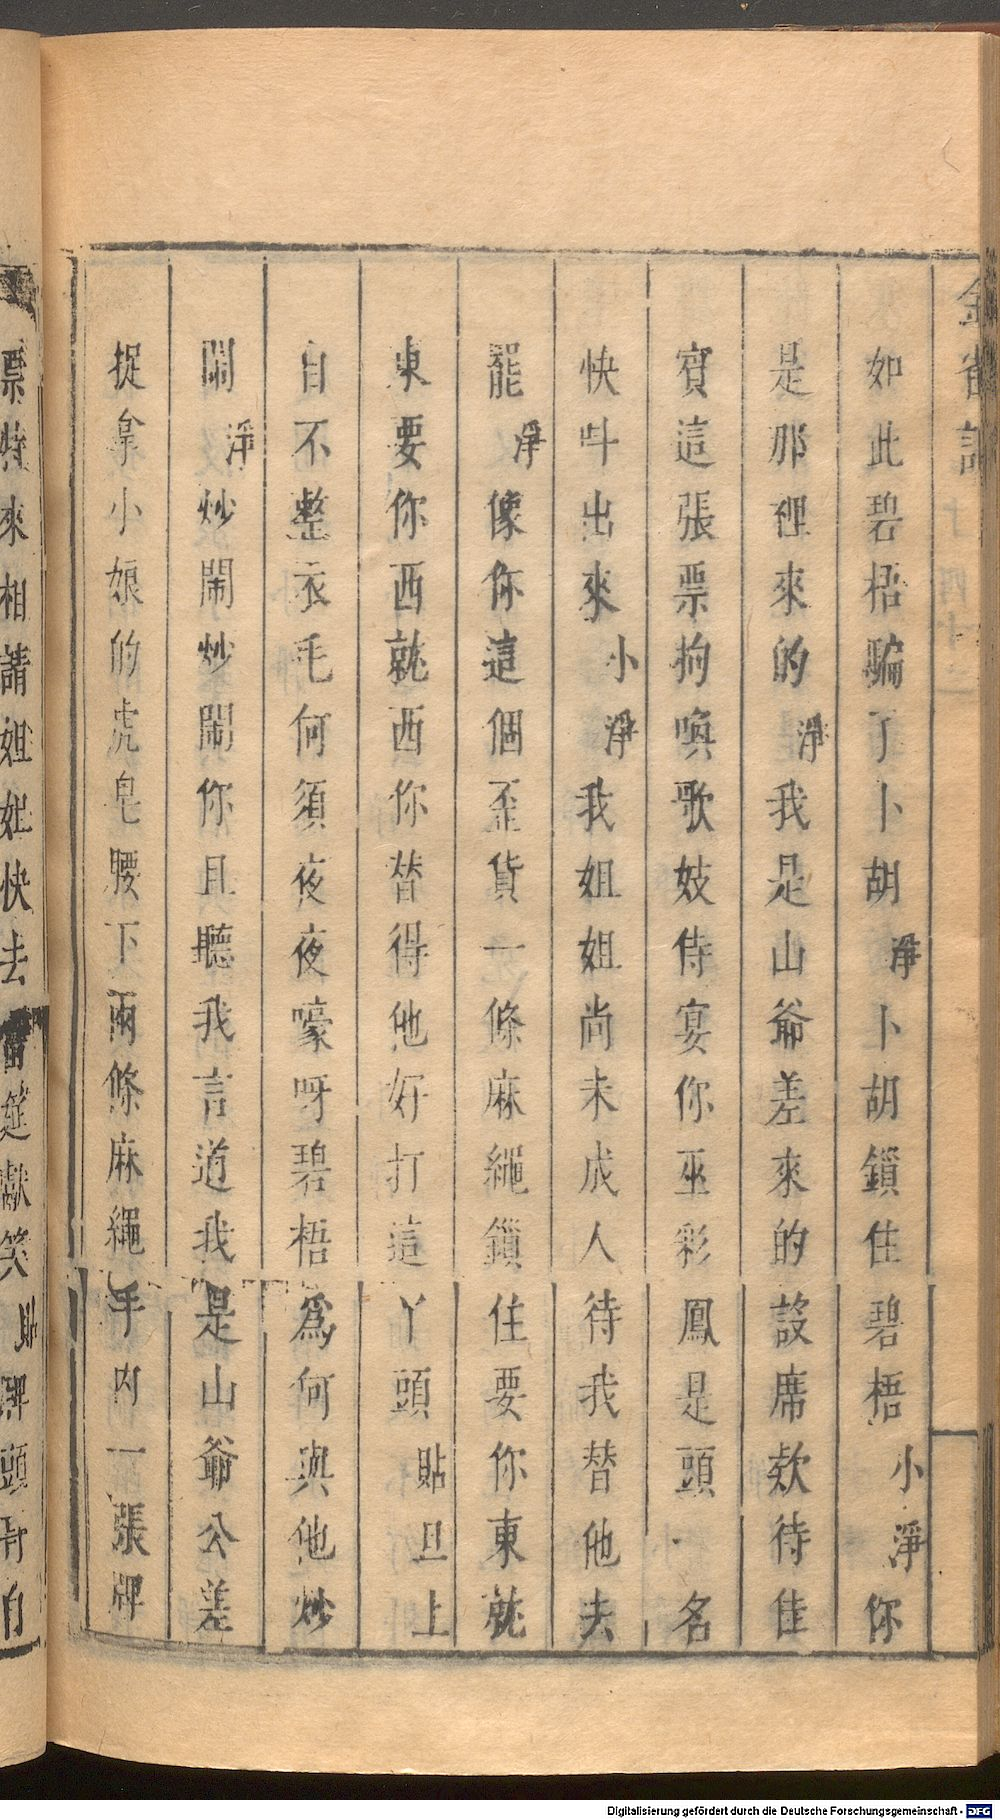 金雀記
如此碧梧騙了卜胡淨卜胡鎖住碧梧小淨你
是那裡來的淨我是山爺差來的設席欵待佳
賓這張票拘喚歌妓侍宴你巫彩鳳是頭名
快呌出來小淨我姐姐尚未成人待我替他去
罷淨像你這個歪貨一條麻繩鎖住要你東就
東要你西就西你替得他好打這丫頭貼旦上
自不整衣毛何須夜夜嚎呀碧梧爲何與他炒
鬧淨炒鬧炒鬧你且聽我言道我是山爺公差
捉拿小娘的虎皂腰下兩條麻繩手內一張牌
票特來相請姐姐快去當筵獻笑貼牌頭
Digitalisierung gefördert durch die Deutsche Forschungsgemeinschaft - DFG